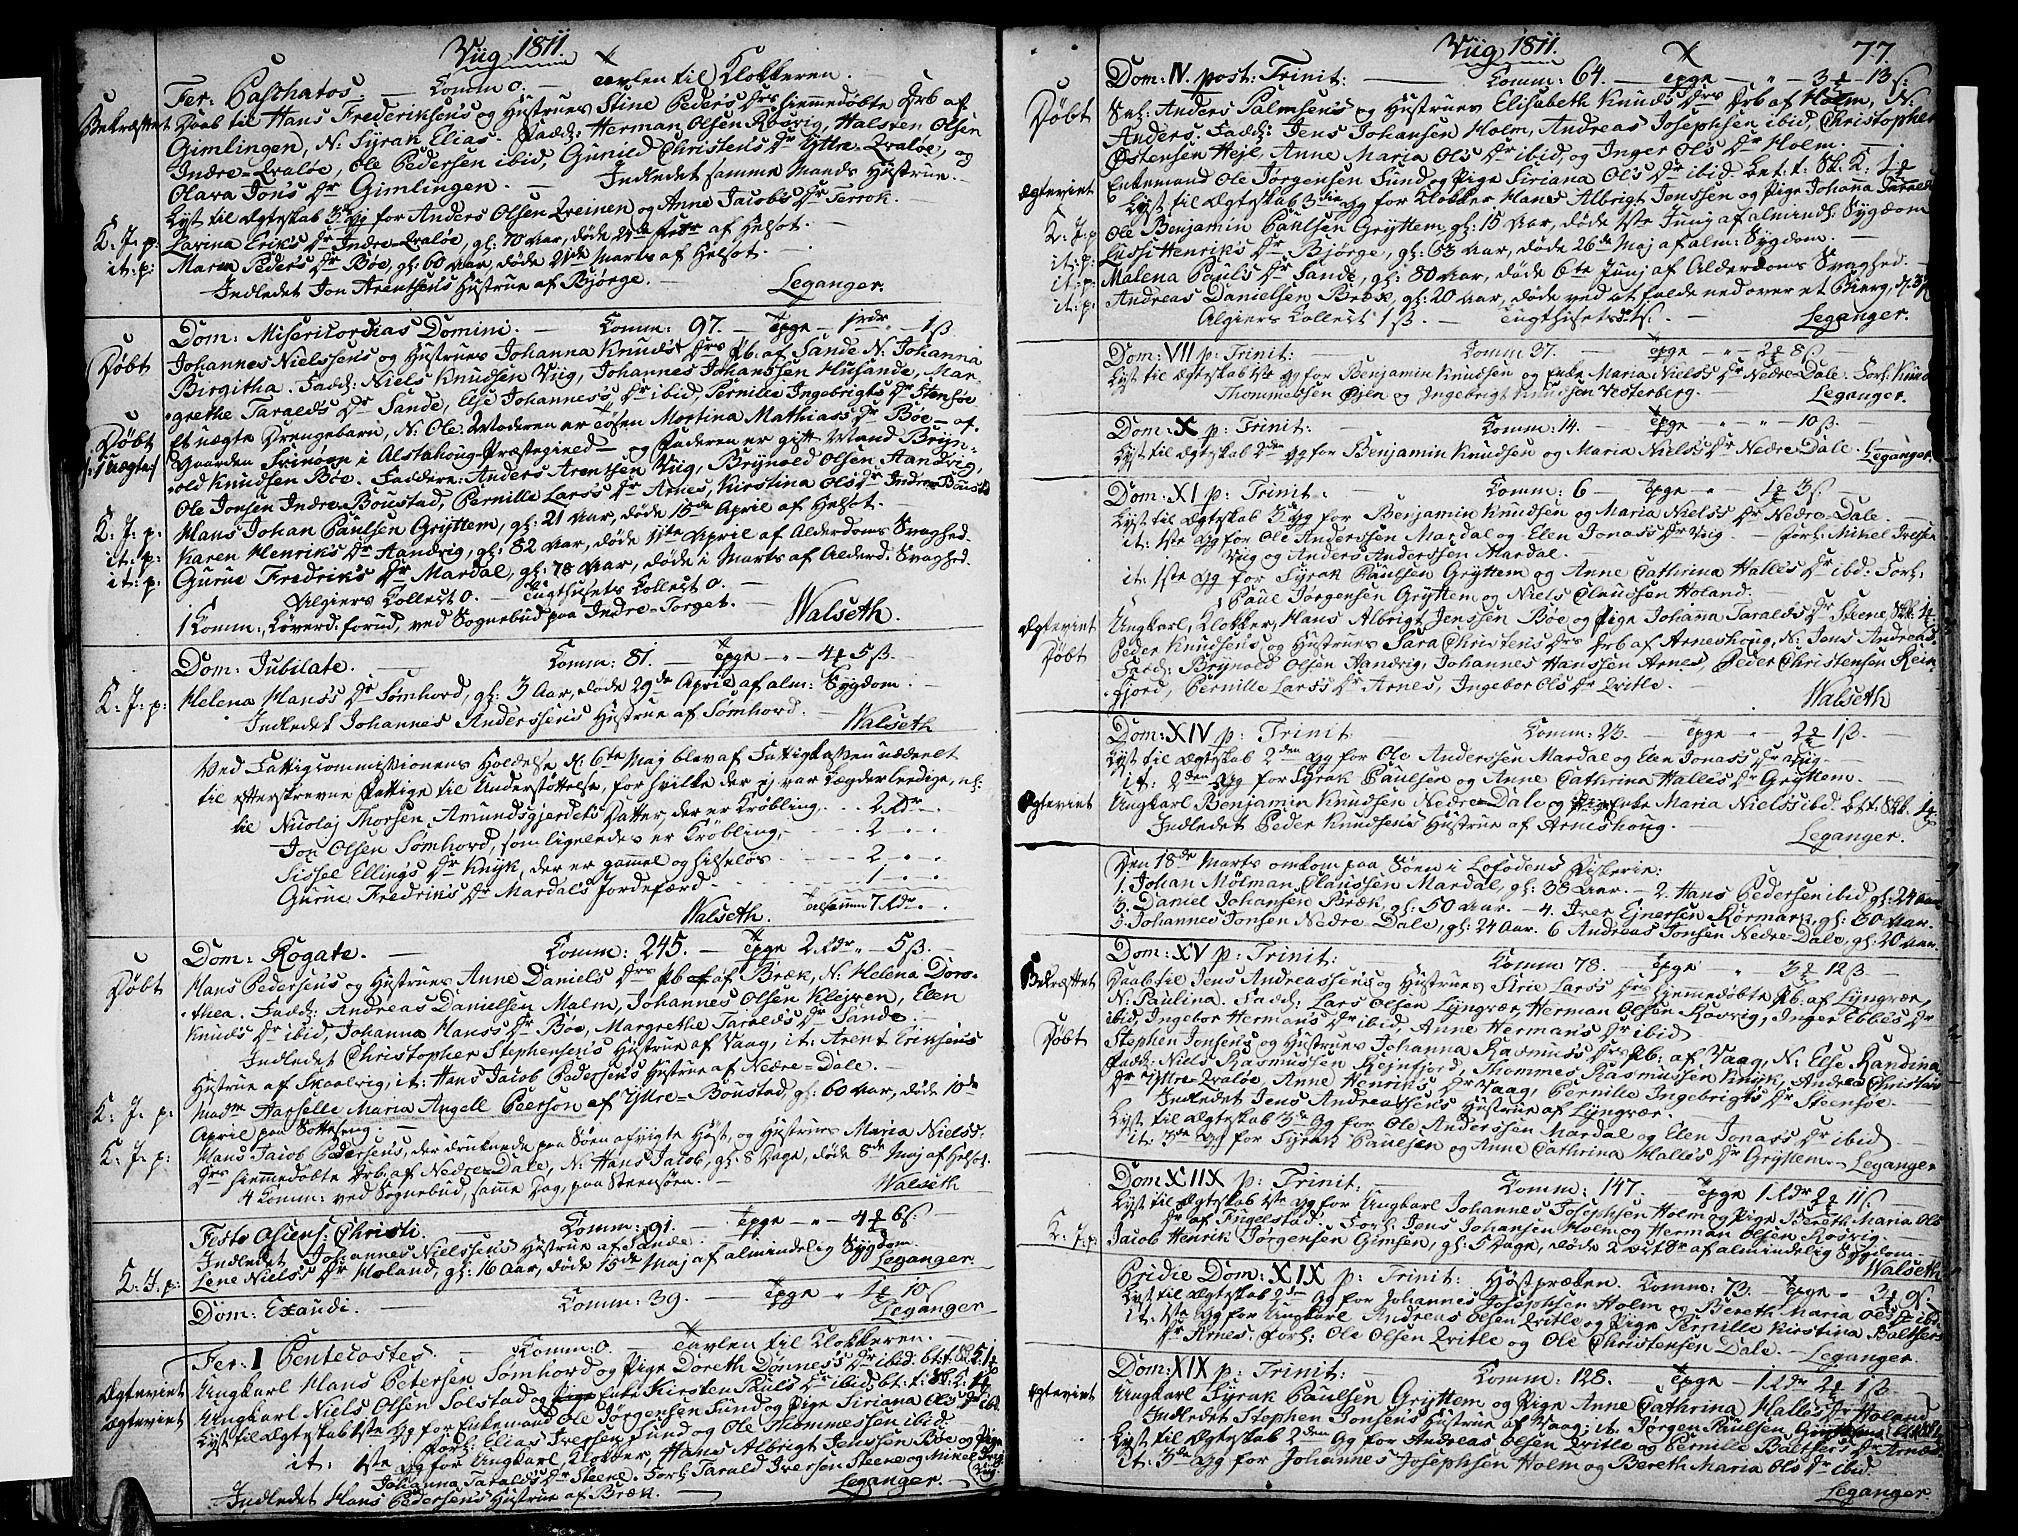 Viig 1811.
Fer: Paschatos. — Comm 0. — Tavlen til Klokkeren.
Bekræftet Daab til Hans Frederiksens og Hustrues Stine Peders Drs hiemmedøbte Drb af
Gimlingen, N: Syrak Elias. Fadd: Herman Olsen Rosvig, Halsten Olsen
Indre-Qvaløe, Ole Pedersen ibid, Gunild Christens Dr Yttre-Qvaløe, og
Olava Jons Dr Gimlingen. — Indledet samme Mands Hustrue.
Lyst til Ægteskab 3die Gg for Anders Olsen Qveinen og Anne Jacobs Dr Terrok.
K: J: p: Larina Eriks Dr Indre-Qvaløe, gl: 70 Aar, døde af Helsot.
it: p: Maren Peders Dr Bøe, gl: 60 Aar, døde Marts af Helsot.
Indledet Jon Arentsens Hustrue af Bjørge. — Leganger.
Dom: Misericordias Domini. — Comm: 97. — Tpge — 1 rdr — 1 ß
Døbt Johannes Nielssens og Hustrues Johanna Knuds Drs Pb. af Sande N. Johanna
Birgitha. Fadd: Niels Knudsen Viig, Johannes Johanssen Husande, Mar-
grethe Taralds Dr Sande, Else Johannes's Dr ibid, Pernille Ingebrigts Dr Stensøe
Døbt Et uægte Drengebarn, N: Ole. Moderen er Tøsen Mortina Mathias's Dr Bøe — af
(: uægte :) Gaarden Svinøen i Alstahoug Præstegield — og Faderen er gift Mand Bryn-
old Knudsen Bøe. Faddere: Anders Arentsen Viig, Brynold Olsen Aandvig,
Ole Jonsen Indre-Boustad, Pernille Lars's Dr Arnes, Kirstina Ols Dr Indre-Boustad
K: J: p: Hans Johan Paulsen Gryttem, gl: 21 Aar, døde 15de April af Helsot.
it: p: Karen Henriks Dr Aandvig, gl: 82 Aar, døde 11te April af Alderdoms Svaghed.
it: p: Gurue Fredriks Dr Mardal, gl: 78 Aar, døde i Marts af Alderd: Svaghed.
Algiers Collect 0. — Tugthusets Collect 0.
1 Comm: Løverd. forud, ved Sognebud paa Indre-Torget. — Walseth.
Dom: Jubilate. — Comm: 81. — Tpge — " 4 5 ß.
K: J: p: Helena Hans's Dr Sømhord, gl: 3 Aar, døde 29de April af alm: Sygdom.
Indledet Johannes Anderssens Hustrue af Sømhord. — Walseth
Ved Fattigcommissionens Holdelse d: 6te Maj blev af Fattigkassen uddeelt
til efterskrevne Fattige til Understøttelse, for hvilke der ej var Lægder ledige, nl:
til Nicolaj Thorsen Amundsgjordets Datter, der er Krøbling . . . 2 Rdr
Jon Olsen Sømhord, som ligeledes er Krøbling, . . . 2
Sissel Ellings Dr Knyk, der er gammel og hielpeløs . . . 2
Gurue Fredriks Dr Mardals Jordefærd . . . 1
Walseth. Tilsammen 7 Rdr
Dom: Rogate. — Comm: 245. — Tpge 2 Rdr " 5 ß.
Døbt Hans Pedersens og Hustrues Anne Daniels Drs Pb af Bræk, N. Helena Doro-
thea. Fadd: Andreas Danielsen Malm, Johannes Olsen Klejven, Elen
Knuds Dr ibid, Johanna Hans's Dr Bøe, Margrethe Taralds Dr Sande.
Indledet Christopher Stephensens Hustrue af Vaag, it: Arent Eriksens
Hustrue af Skaalvig, it: Hans Jacob Pedersens Hustrue af Nedre-Dale.
K: J: p: Madm Harselle Maria Angell Peerson af Yttre-Boustad, gl: 60 Aar, døde 10de
April paa Sotteseng.
K: J: p: Hans Jacob Pedersens, der druknede paa Søen afvigte Høst, og Hustrues Maria Niels's
Drs hiemmedøbte Drb. af Nedre-Dale, N: Hans Jacob, gl: 8 Dage, døde 8de Maj af Helsot.
4 Comm: ved Sognebud, samme Dag, paa Steensøen. — Walseth
Festo Ascens: Christi. — Comm: 91. — Tpge — " 4 6 ß.
Indledet Johannes Nielssens Hustrue af Sande.
K: J: p: Lene Niels's Dr Moland, gl: 16 Aar, døde 15de Maj af almindelig Sygdom. Leganger.
Dom: Exaudi. — Comm: 39. — Tpge " 10 ß Leganger
Fer: 1 Pentecostes. — Comm: 0. — Tavlen til Klokkeren.
Ægteviet Ungkarl Hans Petersen Sømhord og Pige Doreth Dønnes's Dr ibid.
Ægteviet Ungkarl Niels Olsen Solstad og Enke Kirsten Pauls Dr ibid.
Lyst til Ægteskab 1ste Gg for Enkemand Ole Jørgensen Sund og Pige Siriana Ols Dr ibid.
Forl: Elias Iversen Sund og Ole Thommessen ibid.
it: 1ste Gg for Ungkarl, Klokker, Hans Albrigt Jenssen Bøe og Pige
Johanna Taralds Dr Steene. Forl: Tarald Iversen Steene og Mikel
Indledet Hans Pedersens Hustrue af Bræk. — Leganger.
Viig 1811. 77.
Dom: IV. post: Trinit: — Comm: 64. — Tpge — " — 3 13 ß.
Døbt Sal: Anders Palmsens og Hustrues Elisabeth Knuds Drs Drb af Holm, N:
Anders. Fadd: Jens Johansen Holm, Andreas Josephsen ibid, Christopher
Østensen Heje, Anne Maria Ols Dr ibid, og Inger Ols Dr Holm.
Ægteviet Enkemand Ole Jørgensen Sund og Pige Siriana Ols Dr ibid. bet: t: Sk: K:
Lyst til Ægteskab 3die Gg for Klokker Hans Albrigt Jenssen og Pige Johanna Taralds
K: J: p Ole Benjamin Paulsen Gryttem, gl: 15 Aar, døde 1ste Junj af almindl: Sygdom
it: p: Lussi Henriks Dr Bjørge, gl: 63 Aar, døde 26de Maj af alm: Sygdom.
it: p: Malena Pauls Dr Sande, gl: 80 Aar, døde 6te Junj af Alderdoms Svaghed.
it: p: Andreas Danielsen Bræk, gl: 20 Aar, døde ved at falde ned over et Bierg,
Algiers Collect 1 ß. — Tugthusets Leganger.
Dom: VII p: Trinit: Comm 37. — Tpge — " — 2 8 ß
Lyst til Ægteskab 1ste Gg for Benjamin Knudsen og Enke Maria Niels's Dr Nedre-Dale. Forl: Knud
Thommessen Øjen og Ingebrigt Knudsen Vesterberg. — Leganger.
Dom: X p: Trinit: — Comm: 14. — Tpge — " — " — 10 ß.
Lyst til Ægteskab 2den Gg for Benjamin Knudsen og Maria Niels's Dr Nedre-Dale. Leganger.
Dom: XI p: Trinit: Comm: 6 — Tpge — 1 3 ß.
Lyst til Ægteskab 3die Gg for Benjamin Knudsen og Maria Niels's Dr Nedre-Dale.
it: 1ste Gg for Ole Anderssen Mardal og Elen Jonas's Dr Viig. — Forl: Mikel Ivessen
Viig og Anders Anderssen Mardal.
it: 1ste Gg for Syrak Paulsen Gryttem og Anne Cathrina Halles Dr ibid: Forl:
Paul Jørgensen Gryttem og Niels Claudsen Holand.
Ægteviet Ungkarl, Klokker, Hans Albrigt Jenssen Bøe og Pige Johanna Taralds Dr Steene,
Døbt Peder Knudsens og Hustrues Sara Christens Drs Drb af Arneshoug, N: Jens Andreas.
Fadd: Brynold Olsen Aandvig, Johannes Hanssen Arnes, Peder Christensen Rein-
fjord, Pernille Lars's Dr Arnes, Ingebor Ols Dr Qvitle. — Walseth
Dom: XIV p: Trinit Comm: 23. — Tpge — 2 1 ß.
Lyst til Ægteskab 2den Gg for Ole Anderssen Mardal og Elen Jonas's Dr Viig.
it: 2den Gg for Syrak Paulsen og Anne Cathrina Halles Dr Gryttem.
Ægteviet Ungkarl Benjamin Knudsen Nedre-Dale og Enke Maria Niels's ibid.
Indledet Peder Knudsens Hustrue af Arneshoug. — Leganger.
Den 18de Marts omkom paa Søen i Lofodens Fiskerie:
1. Johan Mølman Claussen Mardal, gl: 38 Aar. — 2. Hans Pedersen ibid gl: 24 Aar
3. Daniel Johansen Bræk, gl: 50 Aar. — 4. Iver Ejnersen Kormark, gl: 30 Aar.
5. Johannes Jonsen Nedre-Dale, gl: 24 Aar. 6 Andreas Jonsen Nedre-Dale, gl: 20 Aar.
Dom: XV p: Trinit: Comm 78. Tpge " 3 12 ß
Bekræftet Daab til Jens Andreassens og Hustrues Sirie Lars's Drs hjemmedøbte Pb. af Lyngvær,
N: Paulina. Fadd: Lars Olsen Lyngvær, Herman Olsen Rosvig, Inger Ebbes Dr
ibid, Ingebor Hermans Dr ibid, Anne Hermans Dr ibid
Døbt Stephen Jonsens og Hustrues Johanna Rasmus's Drs Pb: af Vaag, N: Else Randina
Fadd: Niels Rasmussen Rejnfjord, Thommes Rasmussen Knyk, Andrea Christens
Dr Yttre-Qvaløe, Anne Henriks Dr Vaag, Pernille Ingebrigts Dr Steensøe.
Indledet Jens Andreassens Hustrue af Lyngvær.
Lyst til Ægteskab 3die Gg for Ole Anderssen Mardal og Elen Jonas's Dr ibid
it: 3die Gg for Syrak Paulsen og Anne Cathrina Halles Dr Gryttem. Leganger
Dom XIIX p: Trinit: — Comm: 147. Tpge 1 Rdr 2 11 ß
Lyst til Ægteskab 1ste Gg for Ungkarl Johannes Josephsen Holm og Pige Bereth Maria Ols
Dr af Fugelstad. Forl: Jens Johansen Holm og Herman Olsen Rosvig.
K: J: p: Jacob Henrik Jørgensen Gimsen, gl: 5 Dage, døde 2 Octbr af almindelig Sygdom.
Walseth
Pridie Dom: XIX p: Trinit: Høstpræken. Comm: 73. — Tpge — " 3 9 ß.
Lyst til Ægteskab 2den Gg for Johannes Josephsen Holm og Bereth Maria Ols Dr ibid.
it: 1ste Gg for Ungkarl Andreas Olsen Qvitle og Pige Pernille Kirstina Baltzers
Dr Arnes. Forl: Ole Olsen Qvitle og Ole Christensen Dale. — Leganger
Dom: XIX p: Trinit: Comm: 128. — Tpge — 1 Rdr 2 1 ß
Ægteviet Ungkarl Syrak Paulsen Gryttem og Pige Anne Cathrina Halles Dr Holand
Indledet Stephen Jonsens Hustrue af Vaag; it: Jørgen Paulsen
Lyst til Ægteskab 2den Gg for Andreas Olsen Qvitle og Pernille Baltzers Dr Arnes
it: 3die Gg for Johannes Josephsen Holm og Bereth Maria Ols Dr ibid.
Leganger.